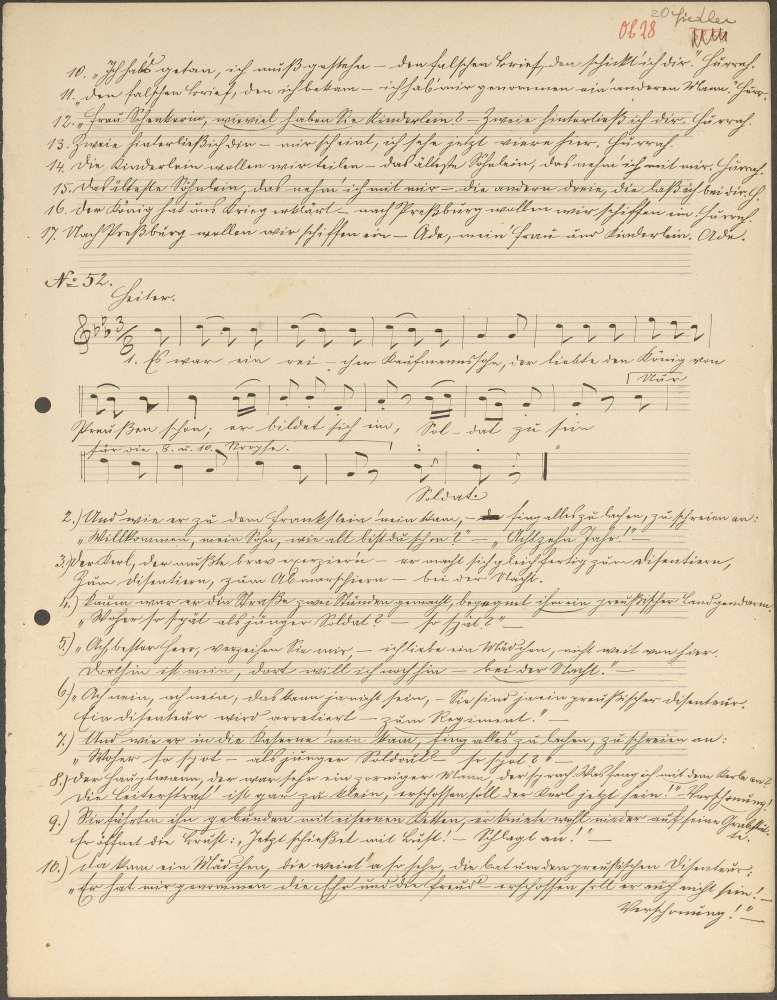 20 Fiedler
0628
10. „Ich hab's getan, ich muß gestehn – den falschen Brief, den schickt' ich dir." Hurrah.
11. „Den falschen Brief, den ich bekam – ich hab' mir genommen ein' anderen Mann." Hurr.
12. „Frau Schenkerin, wieviel haben Sie Kinderlein? – Zweie hinterließ ich dir. Hurrah.
13. Zweie hinterließ ich dir – mir scheint, ich sehe jetzt viere hier. Hurrah.
14. Die Kinderlein wollen wir teilen – das älteste Söhnlein, das nehm' ich mit mir. Hurrah.
15. Das älteste Söhnlein, das nehm' ich mit mir – die andern dreie, die laß ich bei dir. H.
16. Der König hat uns Krieg erklärt – nach Preßburg wollen wir schiffen ein. Hurrah.
17. Nach Preßburg wollen wir schiffen ein – Ade, mein Frau und Kinderlein. Ade.
No 52.
Heiter.
1. Es war ein rei – cher Kaufmannssohn, der liebte den König von
Nur
Preußen schon; er bildet sich ein, Sol – dat zu sein
für die 8. u. 10. Strophe.
Soldat.
2.) Und wie er zu dem nein kam, – fing alles zu lachen, zu schreien an:
„Willkommen, mein Sohn, wie alt bist du schon?" – „Achtzehn Jahr!" –
3.) Der Kerl, der mußte brav exerzier'n – er macht sich gleich fertig zum Disentiern,
Zum Disentiern, zum Abmarschiern – bei der Nacht.
4.) Kaum war er die Straße zwei Stunden gemacht, begegnet ihm ein preußischer Landgendarm.
„Woher so spät als junger Soldat? – so spät?" –
5.) „Ach bester Herr, verzeihen Sie mir, – ich liebe ein Mädchen, nicht weit von hier.
Dorthin ist mein, dort will ich noch hin – bei der Nacht." –
6.) „Ach nein, ach nein, das kann ja nicht sein, – Sie sind ja ein preußischer Disenteur.
Ein Disenteur wird arretiert – zum Regiment." –
7.) Und wie er in die Kaserne nein kam, fing alles zu lachen, zu schreien an:
„Woher so spot – als junger Soldout – so spot?" –
8.) Der Hauptmann, der war sehr ein zorniger Mann, der sprach: Was fang ich mit dem Kerle an?
Die Leiterstraf' ist gar zu klein, erschossen soll der Kerl jetzt sein!" – Verschonung!
9.) Sie führten ihn gebunden mit eisernen Ketten, er kniete wohl nieder auf seine Grabstät-
te.
Er öffnet die Brust: „Jetzt schießet mit Lust! – Schlagt an!" –
10.) Da kam ein Mädchen, die weint' a so sehr, die bat um den preußischen Disenteur:
„Er hat mir genommen die Ehr' und die Freud' – erschossen soll er auch nicht sein! –
Verschonung!" –